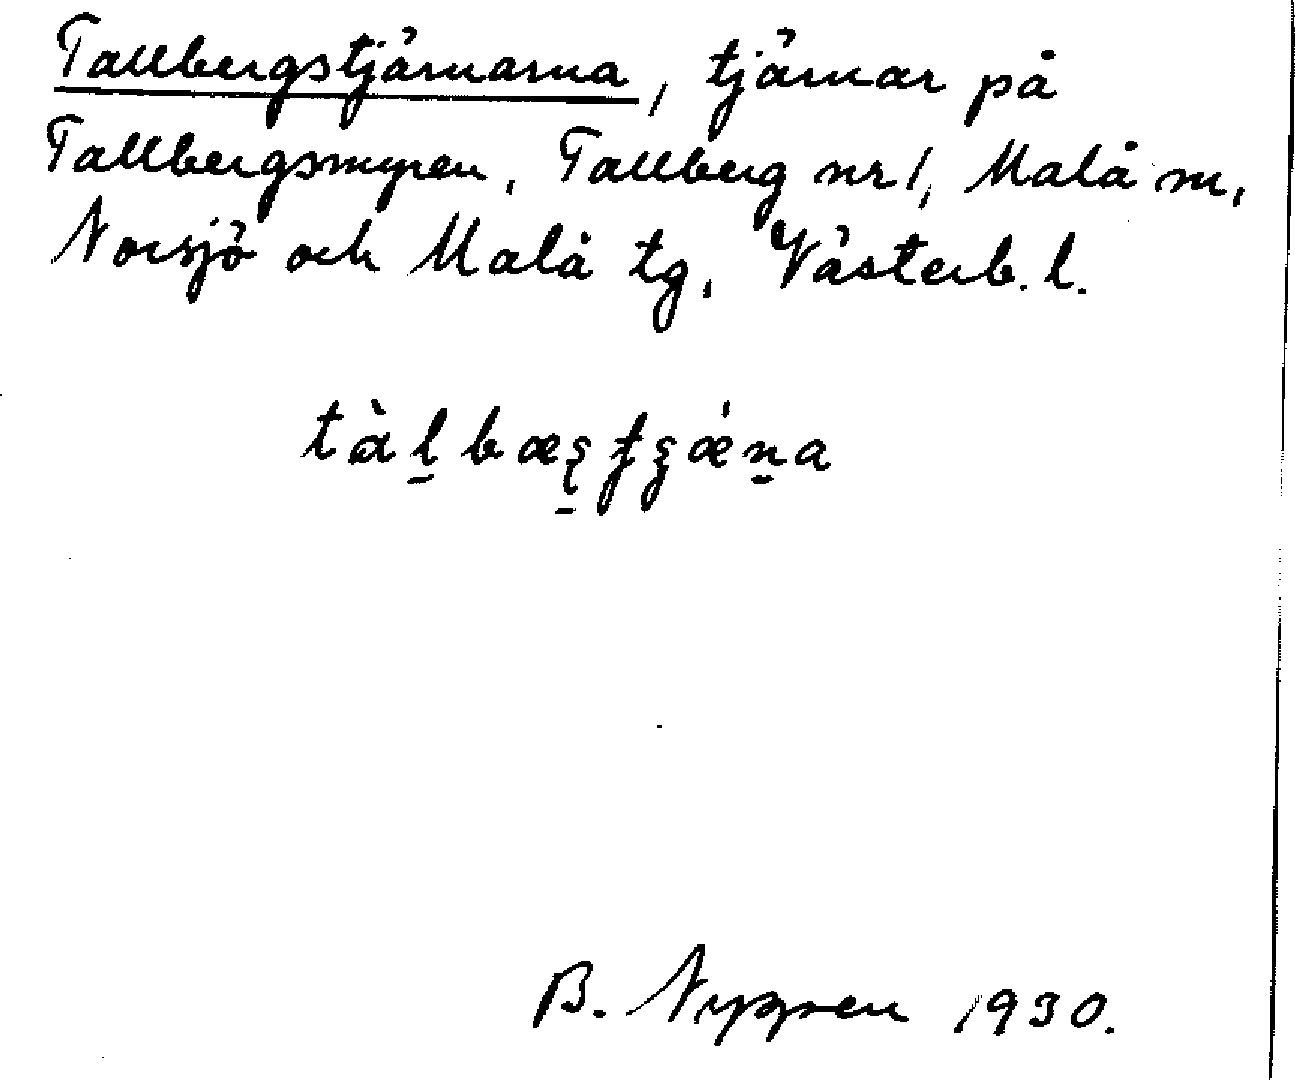 Tallbergstjärnarna, tjärnar på
Tallbergsmyren, Tallberg nr 1, Malå m,
Norsjö och Malå tg, Västerb. l.
B. Nygren 1930.